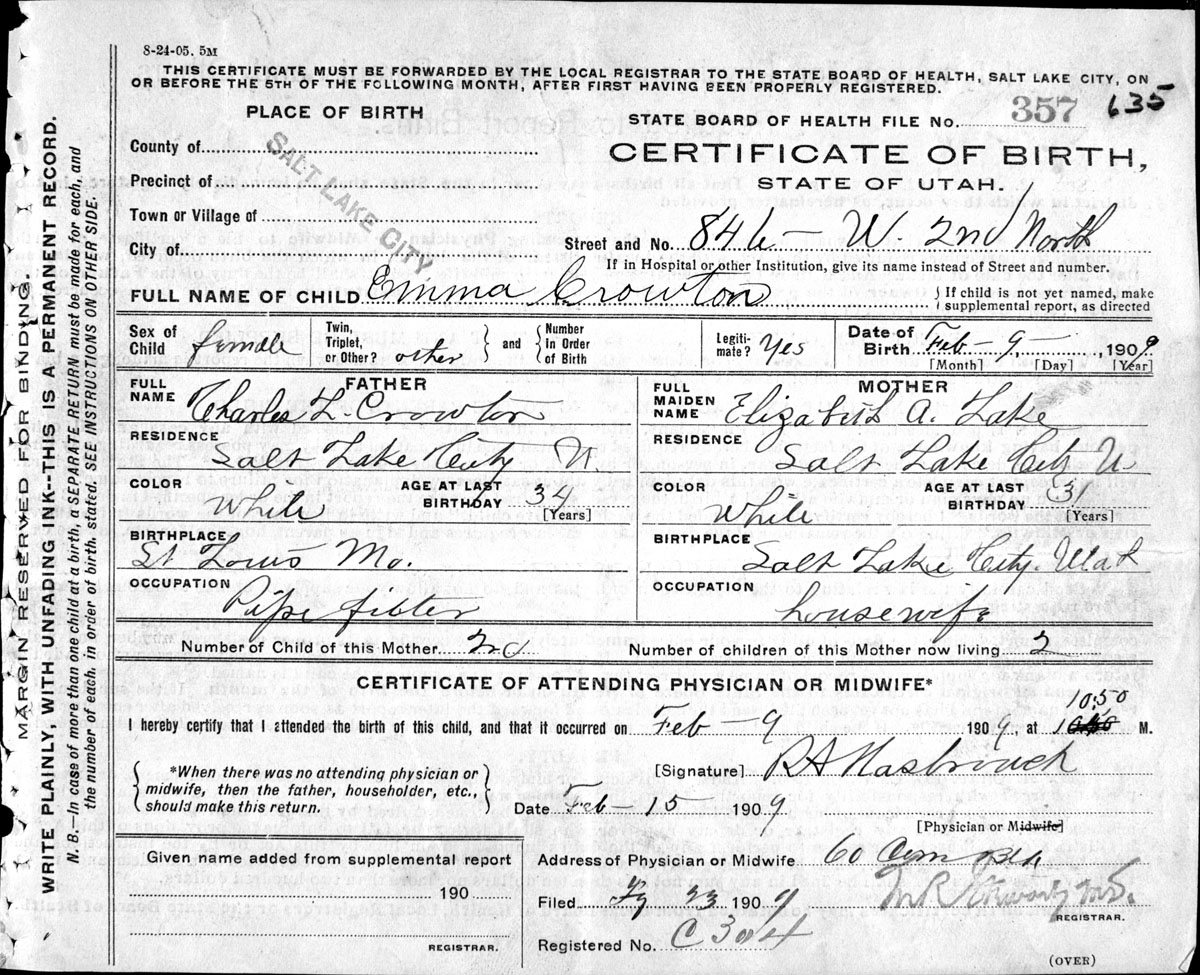 8-24-05. 5M
THIS CERTIFICATE MUST BE FORWARDED BY THE LOCAL REGISTRAR TO THE STATE BOARD OF HEALTH, SALT LAKE CITY, ON
OR BEFORE THE 5TH OF THE FOLLOWING MONTH, AFTER FIRST HAVING BEEN PROPERLY REGISTERED.
PLACE OF BIRTH
STATE BOARD OF HEALTH FILE NO. 357 635
County of
CERTIFICATE OF BIRTH,
Precinct of
STATE OF UTAH.
SALT LAKE CITY
Town or Village of
City of
Street and No. 846 - W. 2nd North
If in Hospital or other Institution, give its name instead of Street and number.
FULL NAME OF CHILD Emma Crowton { If child is not yet named, make supplemental report, as directed
Sex of Child female Twin, Triplet, or Other? other } and { Number In Order of Birth Legiti-mate? Yes Date of Birth Feb - 9 - , 1909
[Month] [Day] [Year]
FATHER
MOTHER
FULL NAME Charles L. Crowton
FULL MAIDEN NAME Elizabeth A. Lake
RESIDENCE Salt Lake City U.
RESIDENCE Salt Lake City U
COLOR White AGE AT LAST BIRTHDAY 34 [Years]
COLOR White AGE AT LAST BIRTHDAY 31 [Years]
BIRTHPLACE St Louis Mo.
BIRTHPLACE Salt Lake City. Utah
OCCUPATION Pipe fitter
OCCUPATION housewife
Number of Child of this Mother 2nd
Number of children of this Mother now living 2
CERTIFICATE OF ATTENDING PHYSICIAN OR MIDWIFE*
10,50
I hereby certify that I attended the birth of this child, and that it occurred on Feb - 9 1909, at M.
{ *When there was no attending physician or midwife, then the father, householder, etc., should make this return. }
[Signature] R A Hasbrouck
Date Feb - 15 1909
[Physician or Midwife]
Given name added from supplemental report
190
REGISTRAR.
Address of Physician or Midwife 60 Com
Filed 23 1909
REGISTRAR.
Registered No. C 304
(OVER)
MARGIN RESERVED FOR BINDING
WRITE PLAINLY, WITH UNFADING INK--THIS IS A PERMANENT RECORD.
N. B.—In case of more than one child at a birth, a SEPARATE RETURN must be made for each, and
the number of each, in order of birth, stated. SEE INSTRUCTIONS ON OTHER SIDE.